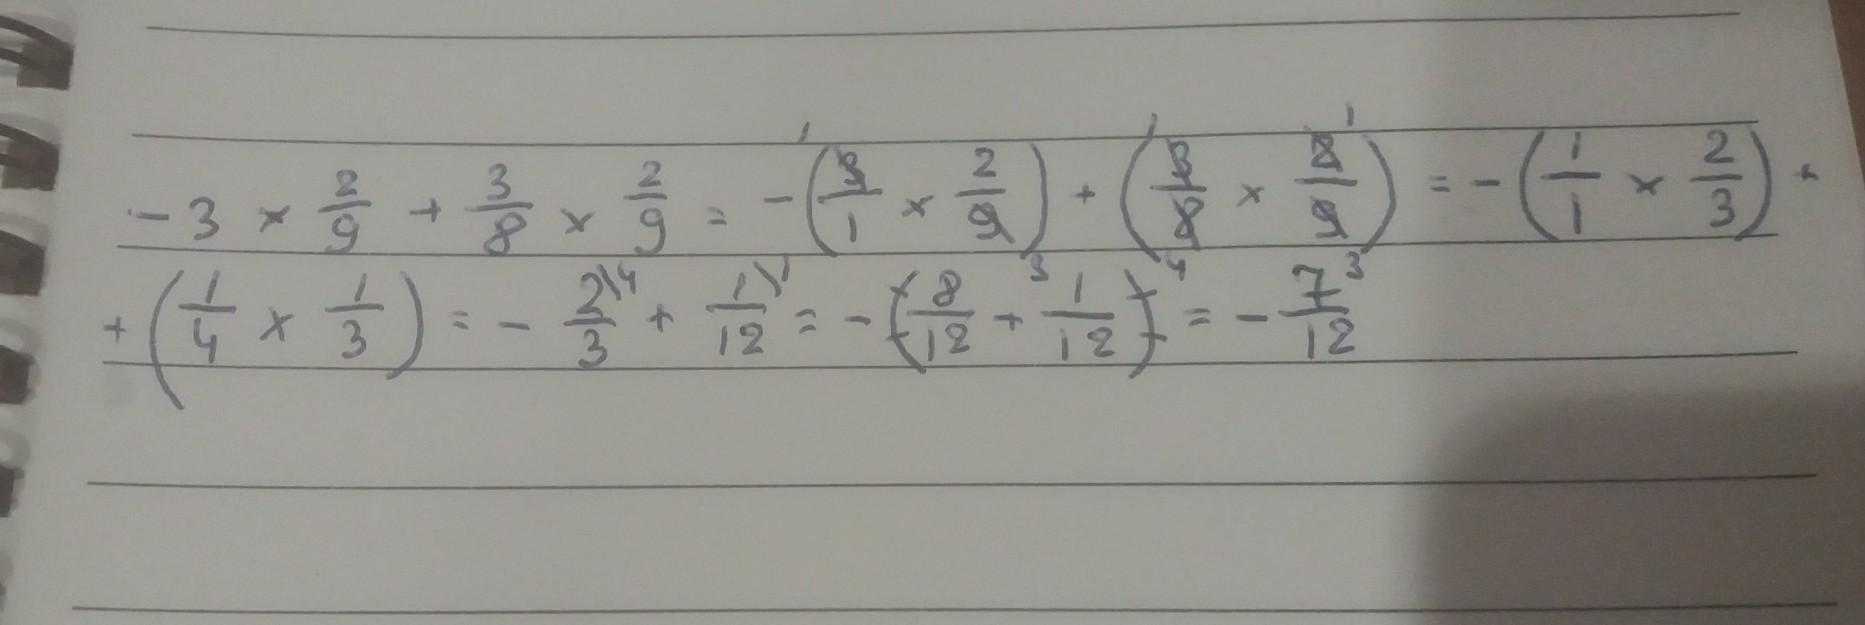 -3 × 2/9 + 3/8 × 2/9 = -(3/1 × 2/9) + (3/8 × 2/9) = -(1/1 × 2/3) +
+ (1/4 × 1/3) = - 2/3\4 + 1/12\1 = -(8/12 + 1/12) = - 7/12